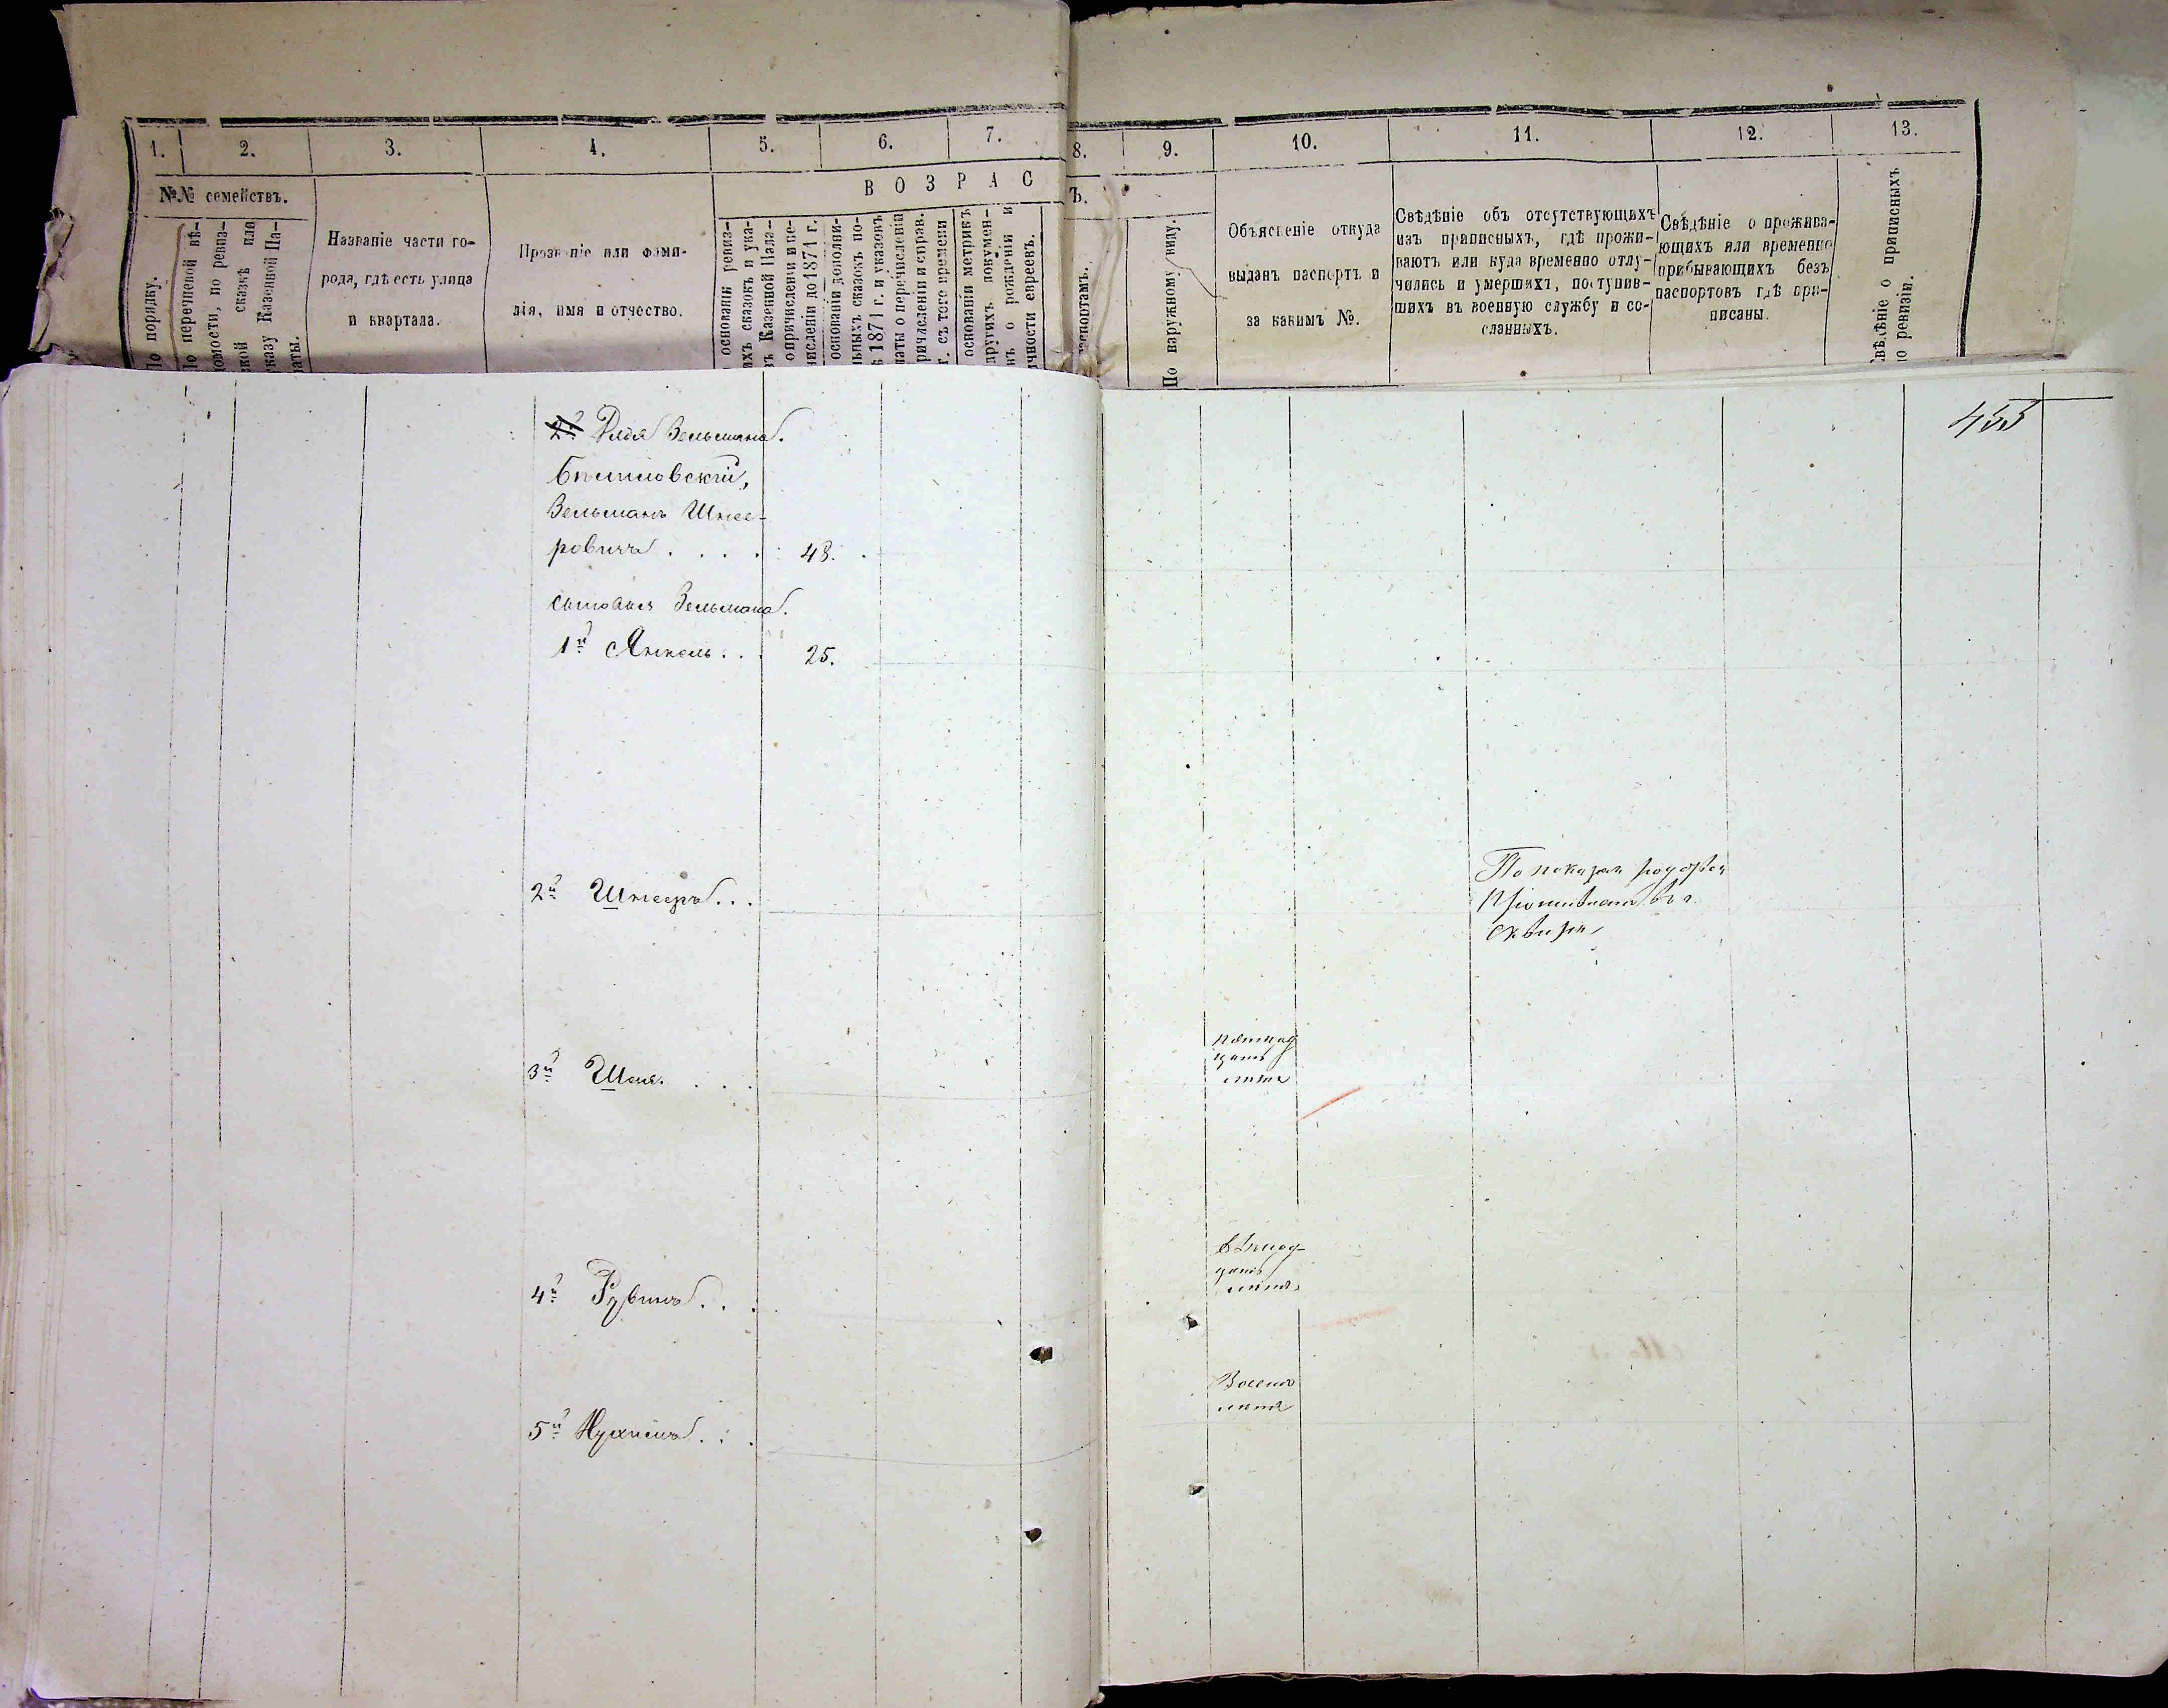 1. 2. 3. 4. 5. 6. 7. 8. 9. 10. 11. 12. 13.
№№ семействъ.
В О З Р А С Ъ.
По порядку.
По перечневой вѣ-
домости, по ревиз-
ской сказкѣ или
указу Казенной Па-
латы.
Названіе части го-
рода, гдѣ есть улица
и квартала.
Прозваніе или фами-
лія, имя и отчество.
основаніи ревиз-
ахъ сказокъ и ука-
въ Казенной Пала-
о причисленіи и пе-
численіи до 1871 г.
основаніи дополни-
льныхъ сказокъ по-
1871 г. и указовъ
латы о перечисленіи
ричисленіи и справ.
г. съ того времени
основаніи метрикъ
другихъ докумен-
нъ о рожденіи и
чности евреевъ.
паспортамъ.
По наружному виду.
Объясненіе откуда
выданъ паспортъ и
за какимъ №.
Свѣдѣніе объ отсутствующихъ
изъ приписныхъ, гдѣ прожи-
ваютъ или куда временно отлу-
чились и умершихъ, поступив-
шихъ въ военную службу и со-
сланныхъ.
Свѣдѣніе о прожива-
ющихъ или временно
прибывающихъ безъ
паспортовъ гдѣ при-
писаны.
Свѣдѣніе о приписныхъ
по ревизіи.
455
2й Зельмана.
Зельманъ Шнее-
ровичъ . . . . 48.
сыновья Зельмана.
1й Янкель . . . 25.
2й Шнееръ . . .
По показан
проживаетъ въ г.
Сквирѣ
3й Шая . . .
пятнад
цать
лѣтъ
4й Рувинъ . . .
цать
лѣтъ
5й Нухимъ . . .
Восемь
лѣтъ